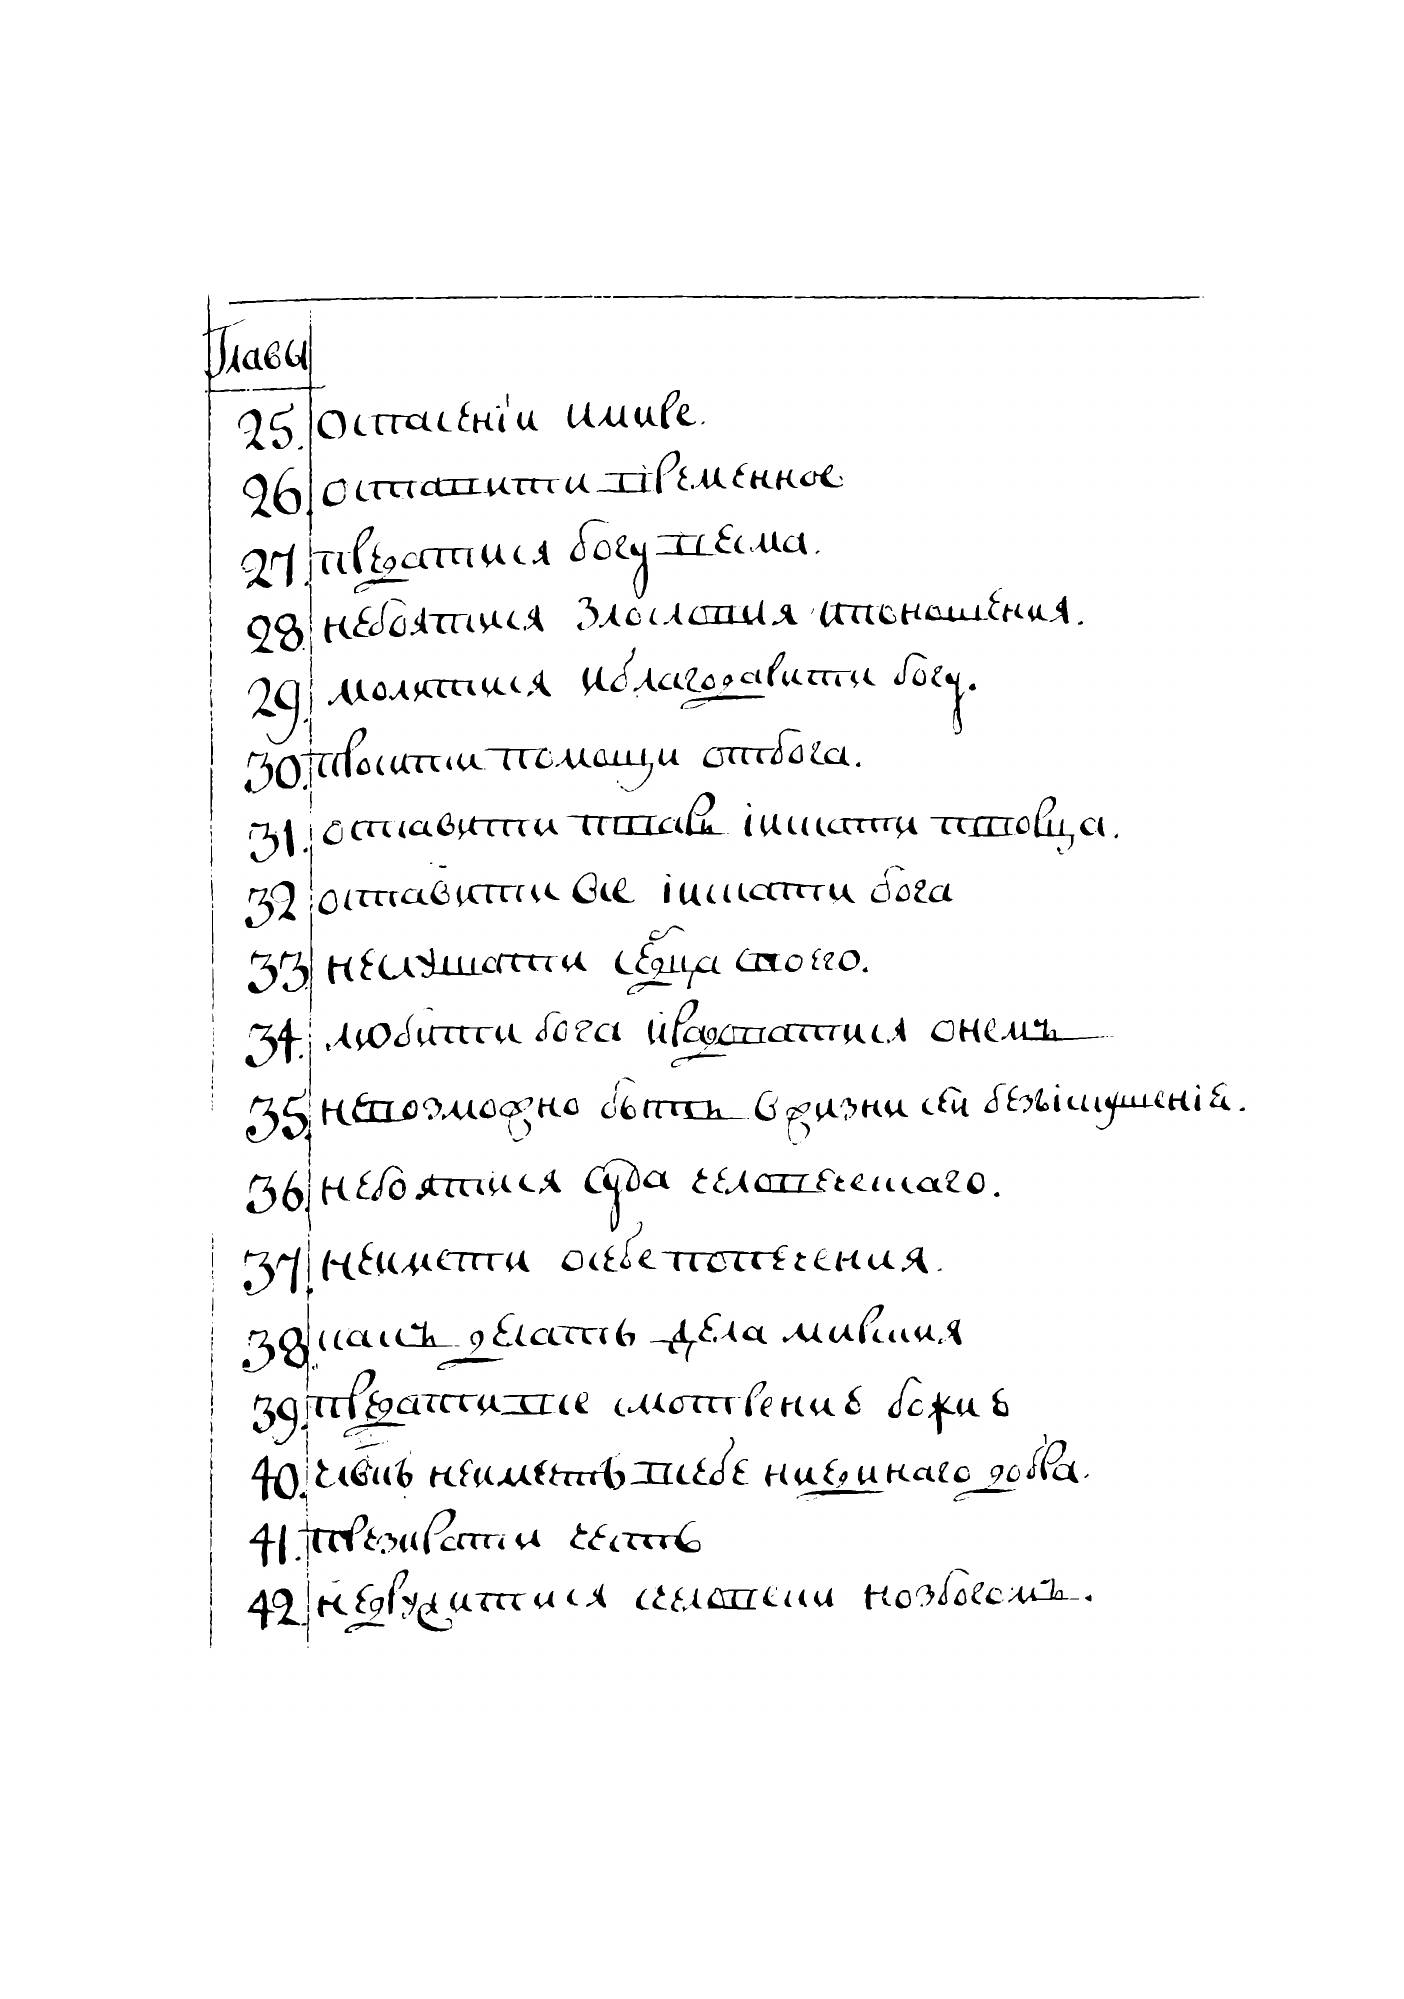 Главы
25. Оспасенїи имире.
26. оставити времѣнное
27. предатися богу весма.
28. небоятися злословия ипоношения.
29. молитися иблагодарити богу.
30. просити помощи отбога.
31. оставити тварь їискати творца.
32 оставити все їискати бога
33. неслушати сердца своего.
34. любити бога ирадоватися онемъ
35. невозможно быть в жизни сей безъїскушенїя.
36. небоятися суда человеческаго.
37. неиметти осебе попечения.
38. какъ делать дела мирския
39. предати все смотрению божию
40. иметь всебе ниединаго добра.
41. презирати честь
42. нетрудитися счеловеки нозбогомъ.